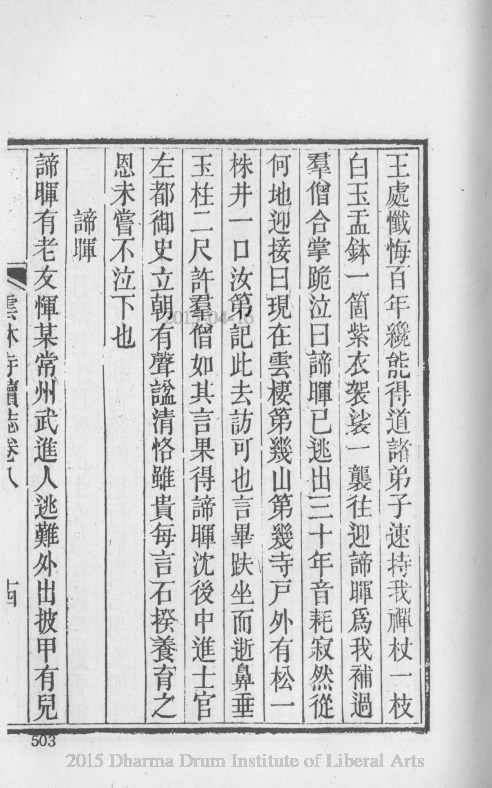 王處懺悔百年纔能得道諸弟子速持我禪杖一枝
白玉盂鉢一箇紫衣袈裟一襲往迎諦暉爲我補過
羣僧合掌跪泣曰諦暉已逃出三十年音耗寂然從
何地迎接曰現在雲棲第幾山第幾寺戶外有松一
株井一口汝第記此去訪可也言畢趺坐而逝鼻垂
玉柱二尺許羣僧如其言果得諦暉沈後中進士官
左都御史立朝有聲諡清恪雖貴每言石揆養育之
恩未嘗不泣下也
諦暉
諦暉有老友惲某常州武進人逃難外出披甲有兒
雲林寺續志卷八
十四
503
2015 Dharma Drum Institute of Liberal Arts